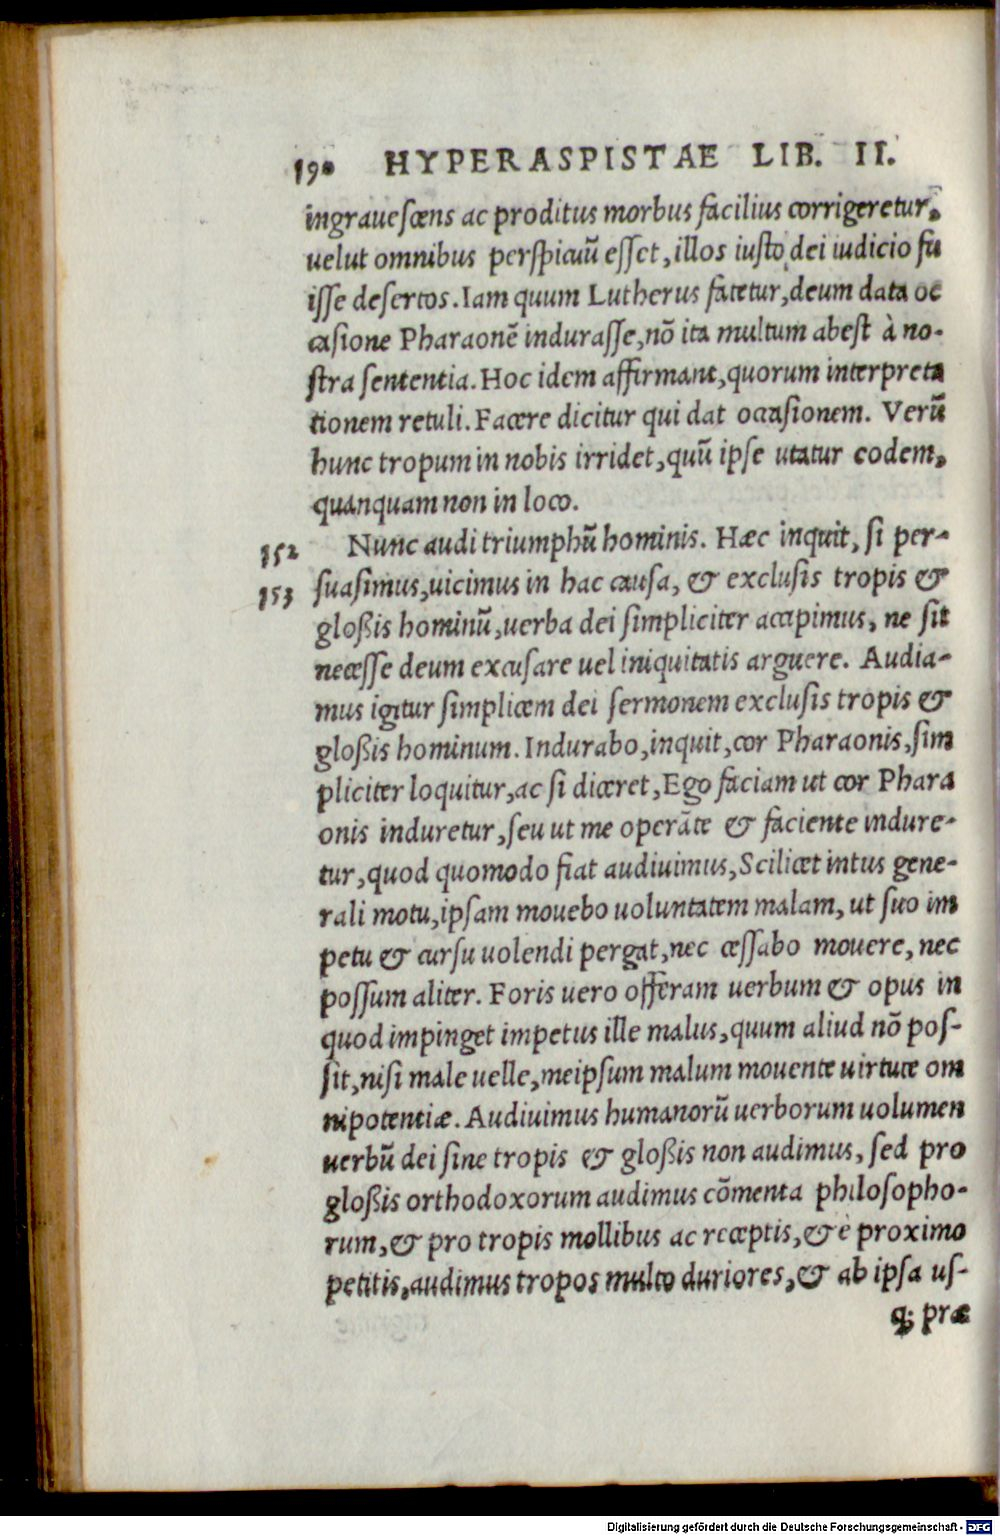 190 HYPERASPISTAE LIB. II.
ingrauescens ac proditus morbus facilius corrigeretur,
uelut omnibus perspicuũ esset, illos iusto dei iudicio fu
isse desertos. Iam quum Lutherus fatetur, deum data oc
casione Pharaonẽ indurasse, nõ ita multum abest à no-
stra sententia. Hoc idem affirmant, quorum interpreta
tionem retuli. Facere dicitur qui dat occasionem. Verũ
hunc tropum in nobis irridet, quũ ipse utatur eodem,
quanquam non in loco.
152 Nunc audi triumphũ hominis. Hæc inquit, si per-
153 suasimus, uicimus in hac causa, & exclusis tropis &
gloßis hominũ, uerba dei simpliciter accipimus, ne sit
necesse deum excusare uel iniquitatis arguere. Audia-
mus igitur simplicem dei sermonem exclusis tropis &
gloßis hominum. Indurabo, inquit, cor Pharaonis, sim
pliciter loquitur, ac si diceret, Ego faciam ut cor Phara
onis induretur, seu ut me operãte & faciente indure-
tur, quod quomodo fiat audiuimus, Scilicet intus gene-
rali motu, ipsam mouebo uoluntatem malam, ut suo im
petu & cursu uolendi pergat, nec cessabo mouere, nec
possum aliter. Foris uero offeram uerbum & opus in
quod impinget impetus ille malus, quum aliud nõ pos-
sit, nisi male uelle, meipsum malum mouente uirtute om
nipotentiæ. Audiuimus humanorũ uerborum uolumen
uerbũ dei sine tropis & gloßis non audimus, sed pro
gloßis orthodoxorum audimus cõmenta philosopho-
rum, & pro tropis mollibus ac receptis, & è proximo
petitis, audimus tropos multo duriores, & ab ipsa us-
q; præ
Digitalisierung gefördert durch die Deutsche Forschungsgemeinschaft - DFG